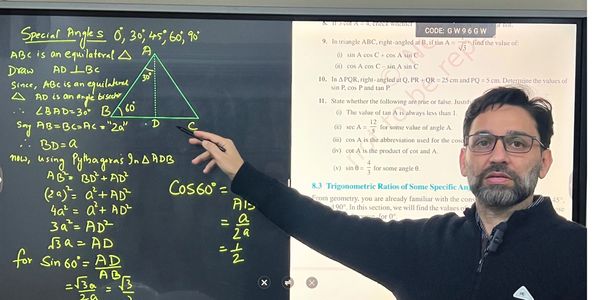 Special Angles 0°, 30°, 45°, 60°, 90°
ABC is an equilateral △
Draw AD ⊥ BC
Since, ABC is an equilateral
△ AD is an angle bisector
∴ ∠BAD = 30°
Say AB = BC = AC = "2a"
∴ BD = a
Now, using Pythagoras In △ADB
AB² = BD² + AD²
(2a)² = a² + AD²
4a² = a² + AD²
3a² = AD²
√3 a = AD
for Sin 60° = AD
AB
= √3a = √3
2a
A
30°
B 60°
D
C
Cos60° =
AB
= a
2a
= 1
2
CODE: GW96GW
9. In triangle ABC, right-angled at B, if tan A = 1/√3 find the value of:
(i) sin A cos C + cos A sin C
(ii) cos A cos C – sin A sin C
10. In Δ PQR, right-angled at Q, PR + QR = 25 cm and PQ = 5 cm. Determine the values of
sin P, cos P and tan P.
11. State whether the following are true or false.
(i) The value of tan A is always less than 1.
(ii) sec A = 12/5 for some value of angle A.
(iii) cos A is the abbreviation used for the
(iv) cot A is the product of cot and A.
(v) sin θ = 4/3 for some angle θ.
8.3 Trigonometric Ratios of Some Specific
From geometry, you are already familiar with the 45°,
90°. In this section, we will find the values
for 0°